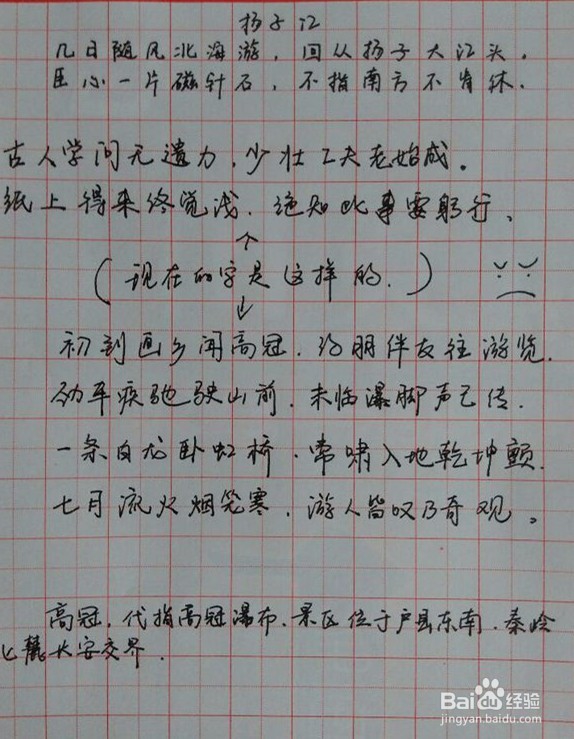 扬子江
几日随风北海游，回从扬子大江头。
臣心一片磁针石，不指南方不肯休。
古人学问无遗力，少壮工夫老始成。
纸上得来终觉浅，绝知此事要躬行。
（现在的字是这样的.）
初到画乡闻高冠，约朋伴友往游览.
动车疾驰驶山前，未临瀑脚声已传.
一条白龙卧虹桥，常啸入地乾坤颤.
七月流火烟笼寒，游人皆叹乃奇观。
高冠，代指高冠瀑布，景区位于户县东南，秦岭
北麓长安交界.
Baidu经验
jingyan.baidu.com